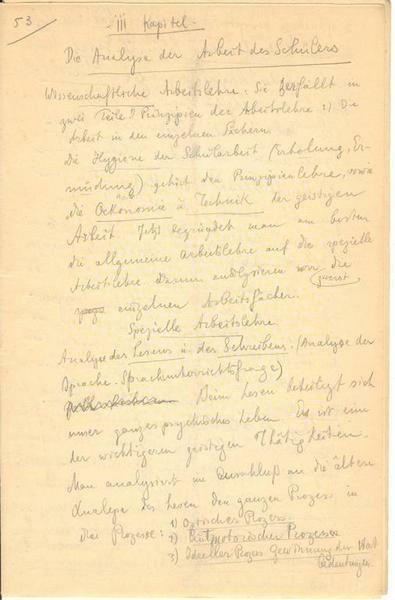 53
III Kapitel.
Die Analyse der Arbeit des Schülers
Wissenschaftliche Arbeitslehre: Sie zerfällt in
zwei Teile: Prinzipien der Arbeitslehre 2) Die
Arbeit in den einzelnen Fächern.
Die Hygiene der Schularbeit (Erholung, Er-
müdung) gehört der Prinzipienlehre, sowie
die Oekonomie u. Technik der geistigen
Arbeit. Jetzt begründet man am besten
die allgemeine Arbeitslehre auf die spezielle
Arbeitslehre. Darum analysieren wir die
zuerst
einzelnen Arbeitsfächer.
Spezielle Arbeitslehre.
Analyse des Lesens u. des Schreibens. (Analyse der
Sprache - Sprachunterrichtsfrage)
Beim lesen beteiligt sich
unser ganzes psychisches Leben. Es ist eine
der wichtigeren geistigen Thätigkeiten.
Man analysiert im Anschluß an die ältere
Analyse des lesen den ganzen Prozess in
drei Prozesse: 1) Optischer Prozess.
2) motorischer Prozess
3) Ideeller Prozess Gewinnung der Wort
bedeutungen.